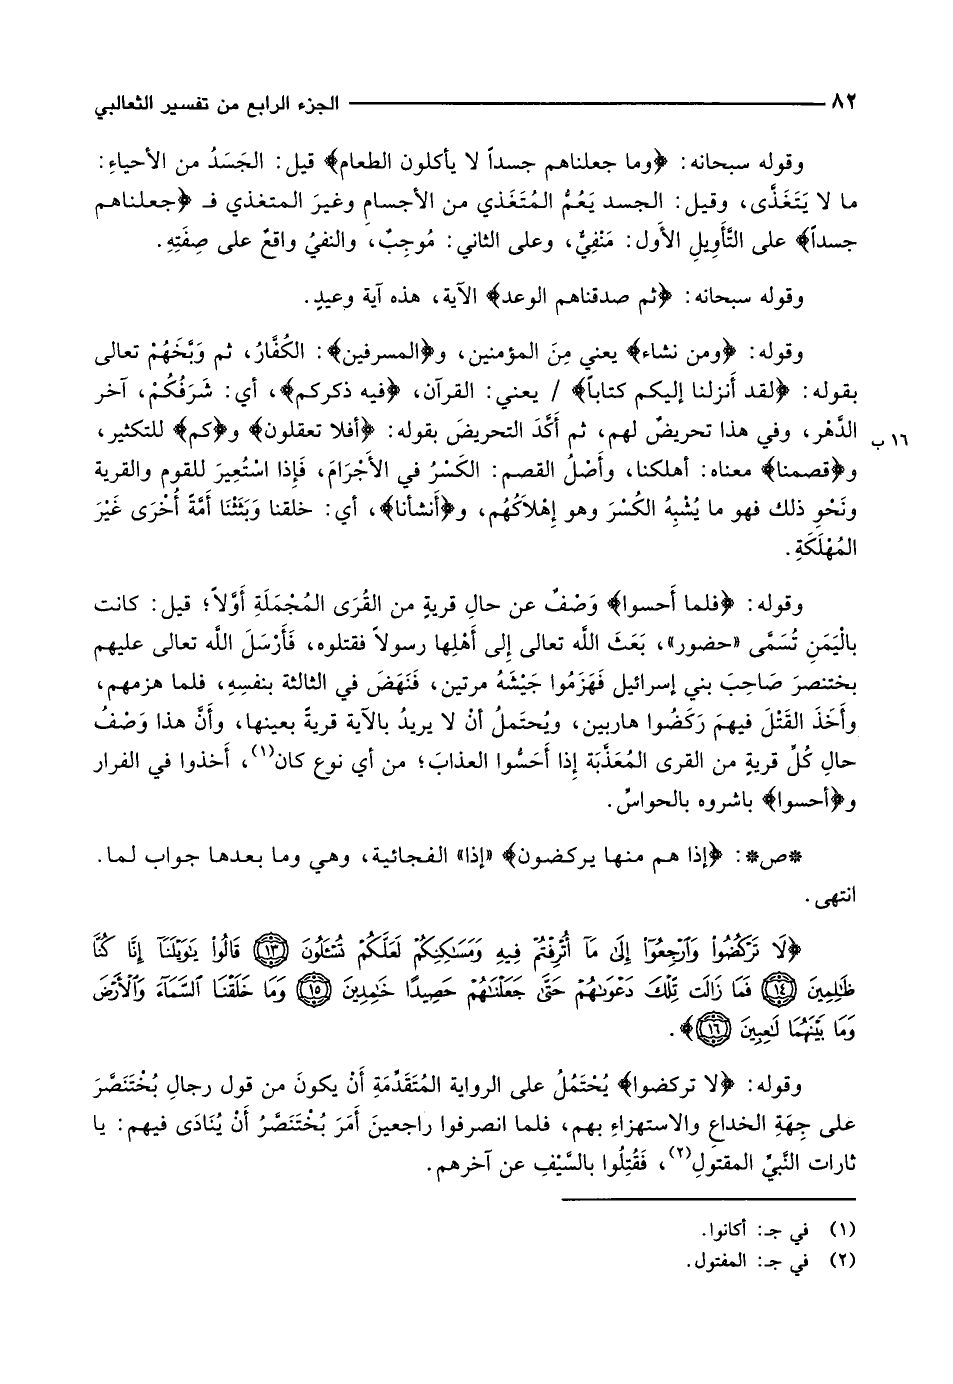 ٨٢ الجزء الرابع من تفسير الثعالبي
وقوله سبحانه: ﴿وما جعلناهم جسداً لا يأكلون الطعام﴾ قيل: الجَسَدُ من الأحياءِ:
ما لا يَتَغَذَّى، وقيل: الجسد يَعُمُّ المُتَغَذي من الأجسامِ وغيرَ المتغذي فـ ﴿جعلناهم
جسداً﴾ على التَّأوِيلِ الأول: مَنْفِيٌّ، وعلى الثاني: مُوجِبٌ، والنفيُ واقعٌ على صِفَتِهِ.
وقوله سبحانه: ﴿ثم صدقناهم الوعد﴾ الآية، هذه آية وعيدٍ.
وقوله: ﴿ومن نشاء﴾ يعني مِنَ المؤمنين، و﴿المسرفين﴾: الكُفَّارُ، ثم وَبَّخَهُمْ تعالى
بقوله: ﴿لقد أَنزلنا إليكم كتاباً﴾ / يعني: القرآن، ﴿فيه ذكركم﴾، أي: شَرَفُكُمْ، آخر
الدَّهْر، وفي هذا تحريضٌ لهم، ثم أَكَّدَ التحريضَ بقوله: ﴿أفلا تعقلون﴾ و﴿كم﴾ للتكثير، ١٦ ب
و﴿قصمنا﴾ معناه: أهلكنا، وأَصْلُ القصم: الكَسْرُ في الأَجْرَامِ، فَإذا اسْتُعِيرَ للقوم والقرية
ونَحْوِ ذلك فهو ما يُشْبِهُ الكَسْرَ وهو إِهْلاَكُهُم، و﴿أَنشأنا﴾، أي: خلقنا وَبَثَثْنَا أمَّةً أُخْرَى غَيْرَ
المُهْلَكَةِ.
وقوله: ﴿فلما أَحسوا﴾ وَصْفٌ عن حالِ قريةٍ من القُرَى المُجْمَلَةِ أَوَّلاً؛ قيل: كانت
بالْيَمَنِ تُسَمَّى «حضور»، بَعَثَ اللّه تعالى إِلى أَهْلِها رسولاً فقتلوه، فَأَرْسَلَ اللّه تعالى عليهم
بختنصرَ صَاحِبَ بني إسرائيل فَهَزَمُوا جَيْشَهُ مرتين، فَنَهَضَ في الثالثة بنفسِهِ، فلما هزمهم،
وأَخَذَ القَتْلَ فيهمَ رَكَضُوا هاربين، ويُحتَملُ أنْ لا يريدُ بالآية قريةً بعينها، وأَنَّ هذا وَصْفُ
حالِ كُلِّ قريةٍ من القرى المُعَذَّبَة إذا أَحَسُّوا العذابَ؛ من أي نوع كان(١)، أَخذوا في الفرار
و﴿أحسوا﴾ باشروه بالحواسِّ.
*ص*: ﴿إذا هم منها يركضون﴾ «إذا» الفجائية، وهي وما بعدها جواب لما.
انتهى.
﴿لَا تَرْكُضُوا۟ وَٱرْجِعُوٓا۟ إِلَىٰ مَآ أُتْرِفْتُمْ فِيهِ وَمَسَـٰكِنِكُمْ لَعَلَّكُمْ تُسْـَٔلُونَ ﴿١٣﴾ قَالُوا۟ يَـٰوَيْلَنَآ إِنَّا كُنَّا
ظَـٰلِمِينَ ﴿١٤﴾ فَمَا زَالَت تِّلْكَ دَعْوَىٰهُمْ حَتَّىٰ جَعَلْنَـٰهُمْ حَصِيدًا خَـٰمِدِينَ ﴿١٥﴾ وَمَا خَلَقْنَا ٱلسَّمَآءَ وَٱلْأَرْضَ
وَمَا بَيْنَهُمَا لَـٰعِبِينَ ﴿١٦﴾﴾.
وقوله: ﴿لا تركضوا﴾ يُحْتَمُلُ على الرواية المُتَقَدِّمَةِ أَنْ يكونَ من قول رجالِ بُخْتَنَصَّرَ
على جِهَةِ الخداعِ والاستهزاءِ بهم، فلما انصرفوا راجعينَ أَمَرَ بُخْتَنَصَّرُ أَنْ يُنَادَى فيهم: يا
ثارات النَّبيِّ المقتولِ(٢)، فَقُتِلُوا بالسَّيْفِ عن آخرهم.
(١) في جـ: أكانوا.
(٢) في جـ: المفتول.